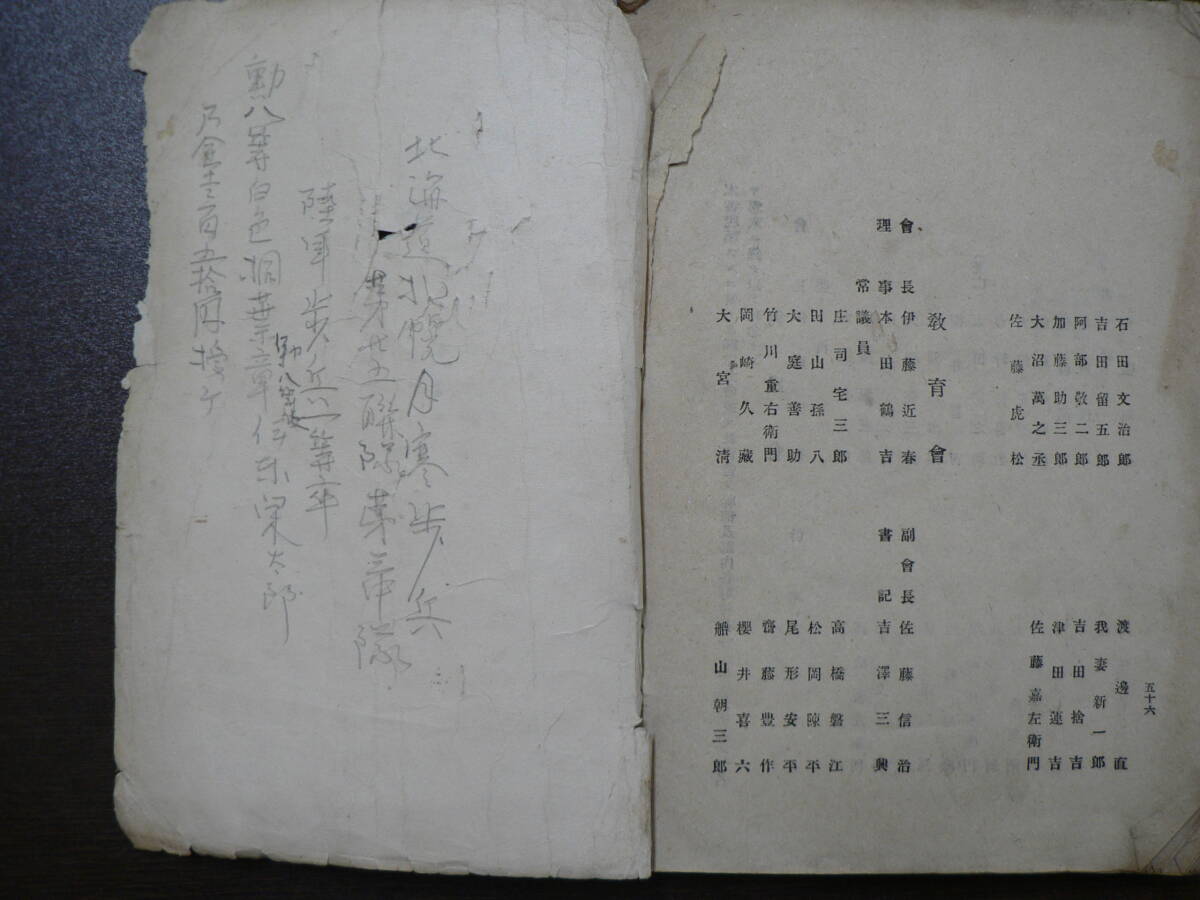 五十六
石田文治郎
渡邊直
吉田留五郎
我妻新一郎
阿部敬二郎
吉田捨吉
加藤助三郎
津田蓮吉
大沼萬之丞
佐藤嘉左衛門
佐藤虎松
敎育會
會長伊藤近春
副會長佐藤信治
理事本田鶴吉
書記吉澤三興
常議員
庄司宅三郎
高橋磐江
田山孫八
松岡陳平
大庭善助
尾形安平
竹川重右衛門
齋藤豊作
岡崎久藏
櫻井喜六
大宮清
船山朝三郎
北海道札幌月寒歩兵
第廿五聯隊第三中隊
陸軍歩兵一等卒
勲八等
勲八等白色桐葉章伊东栄太郎
乃金壱百五拾円授ケ